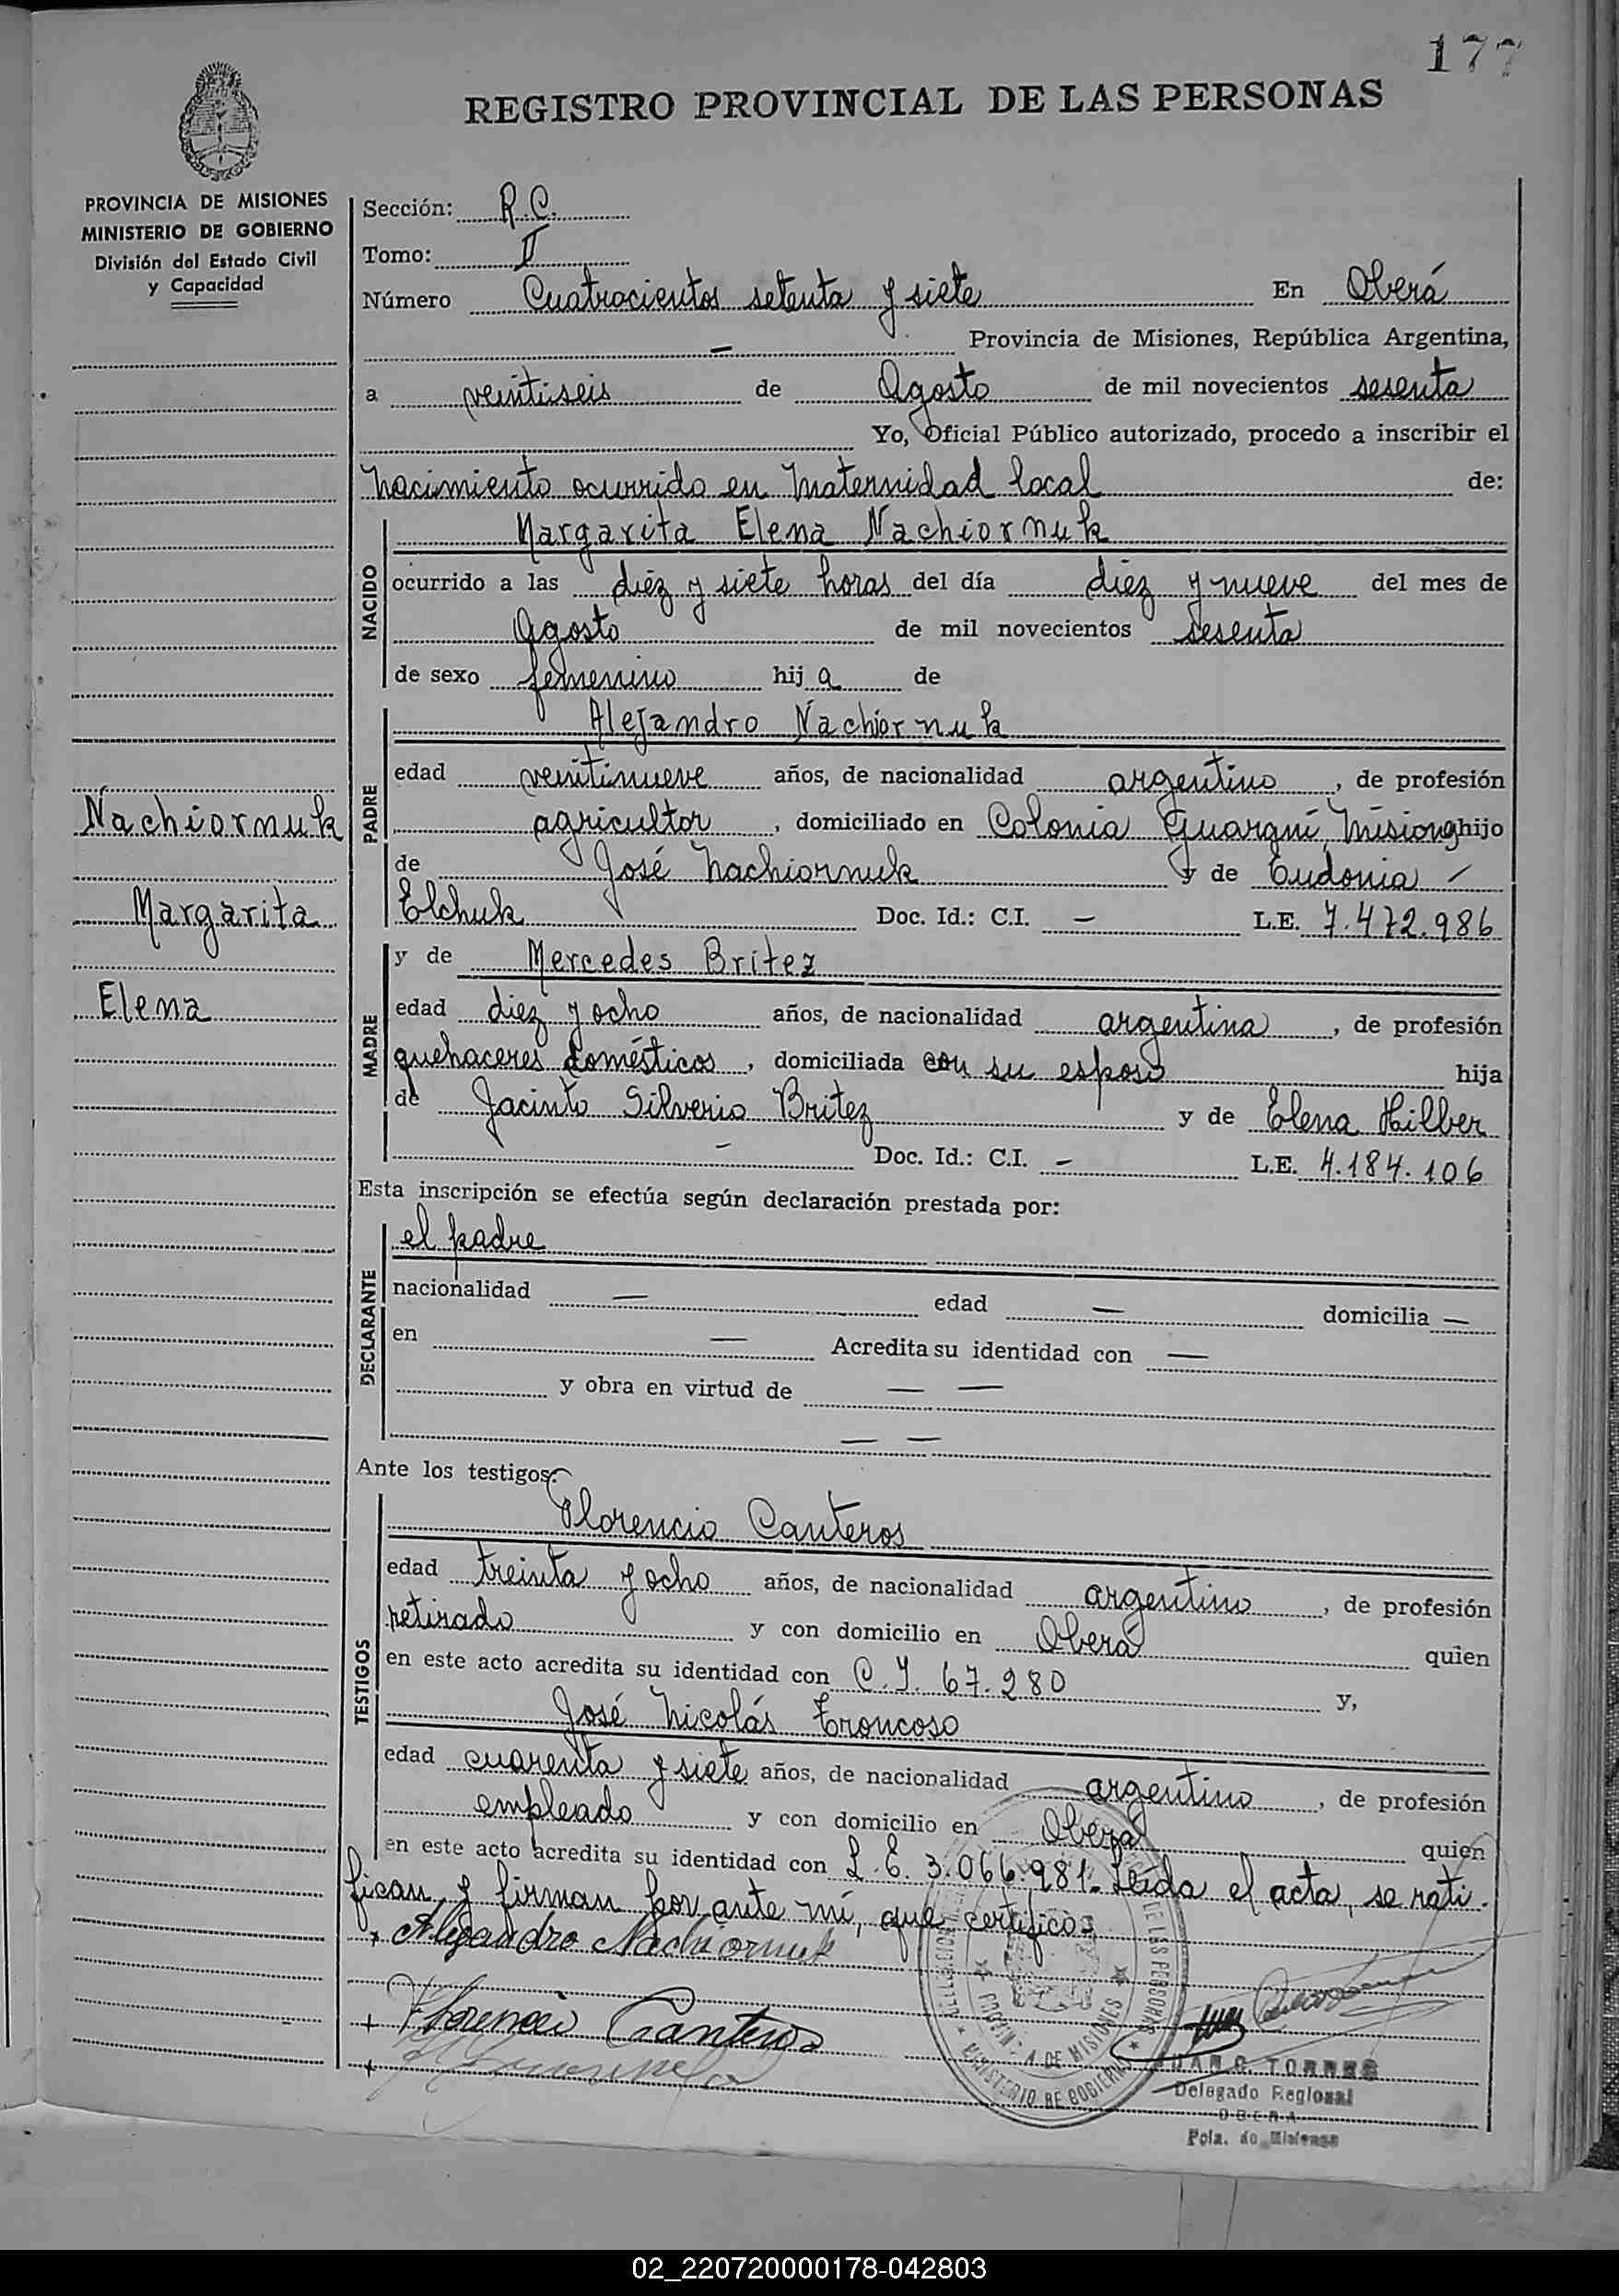 177
REGISTRO PROVINCIAL DE LAS PERSONAS
PROVINCIA DE MISIONES
MINISTERIO DE GOBIERNO
División del Estado Civil
y Capacidad
Sección: R.C.
Tomo: II
Número Cuatrocientos setenta y siete En Oberá
— Provincia de Misiones, República Argentina,
a veintiseis de Agosto de mil novecientos sesenta
Yo, Oficial Público autorizado, procedo a inscribir el
nacimiento ocurrido en Maternidad local de:
Margarita Elena Nachiornuk
NACIDO
ocurrido a las diéz y siete horas del día diez y nueve del mes de
Agosto de mil novecientos sesenta
de sexo femenino hij a de
Alejandro Nachiornuk
PADRE
edad veintinueve años, de nacionalidad argentino, de profesión
agricultor, domiciliado en Colonia Guaraní, Misiones hijo
de José Nachiornuk y de Eudonia —
Elchuk Doc. Id.: C.I. — L.E. 7.472.986
Nachiornuk
Margarita
Elena
MADRE
y de Mercedes Britez
edad diez y ocho años, de nacionalidad argentina, de profesión
quehaceres domésticos, domiciliada con su esposo hija
de Jacinto Silverio Britez y de Elena Hilber
— Doc. Id.: C.I. — L.E. 4.184.106
Esta inscripción se efectúa según declaración prestada por:
DECLARANTE
el padre
nacionalidad — edad — domicilia —
en — Acredita su identidad con —
y obra en virtud de — —
— —
Ante los testigos:
TESTIGOS
Florencio Canteros
edad treinta y ocho años, de nacionalidad argentino, de profesión
retirado y con domicilio en Oberá quien
en este acto acredita su identidad con C.I. 67.280 y,
José Nicolás Troncoso
edad cuarenta y siete años, de nacionalidad argentino, de profesión
empleado y con domicilio en Oberá quien
en este acto acredita su identidad con L.E. 3.066.981.- Leída el acta, se rati-
fican y firman por ante mí, que certifico:
+ Alejandro Nachiornuk
+ Florencio Canteros
+
DE LAS PERSONAS
PROVINCIA DE MISIONES
MINISTERIO DE GOBIERNO
JUAN C. TORRES
Delegado Regional
OBERA
Pcia. de Misiones
02_220720000178-042803